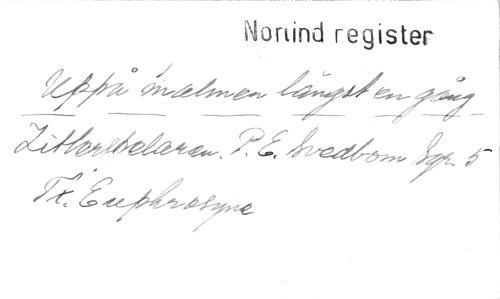 Norlind register
Uppå malmen längst en gång
Zitterspelaren. P. E. Svedbom Sgr. 5
Tx. Euphrosyne